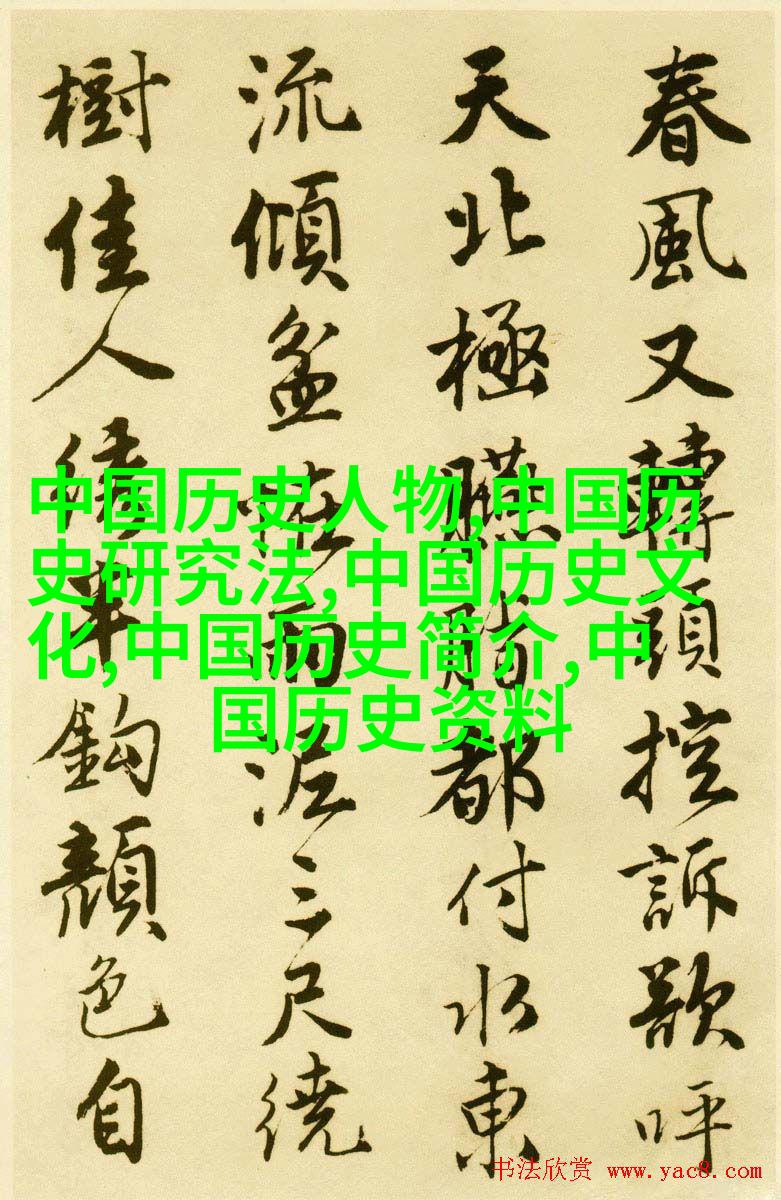 春風又轉頭控訴呼
天北極臙脂都付水東
流傾盆怪雨泥三尺繞
樹佳人半鈎顏色自
中国历史人物,中国历
史研究法,中国历史文
化,中国历史简介,中
国历史资料
书法欣赏 www.yac8.com